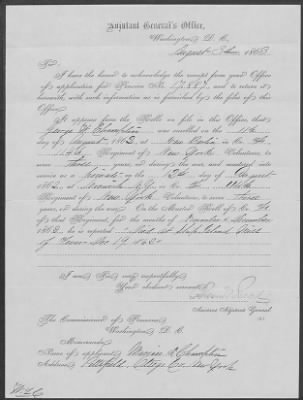 Adjutant General's Office,
Washington, D. C.
August 186
Sir:
I have the honor to acknowledge the receipt from your Office
of application for Pension No. and to return it
herewith, with such information as is furnished by the files of this
Office.
It appears from the Rolls on file in this Office, that
George W. Champlin was enrolled on the 11th
day of August, 1862, at New Berlin in Co. H,
114th Regiment of New York Volunteers, to
serve Three years, or during the war, and mustered into
service as a Private on the 12th day of August
1862, at N.Y., in Co. H, 114th
Regiment of New York Volunteers, to serve Three
years, or during the war. On the Muster Roll of Co. H
of that Regiment, for the months of November & December
1862, he is reported Died at Ship Island Miss
of Fever Dec 19 1862
I am, Sir, very respectfully,
Your obedient servant,
Assistant Adjutant General.
The Commissioner of Pensions,
Washington, D. C.
Memoranda:
Name of applicant, Champlin
Address, Pittsfield, Otsego Co. New York